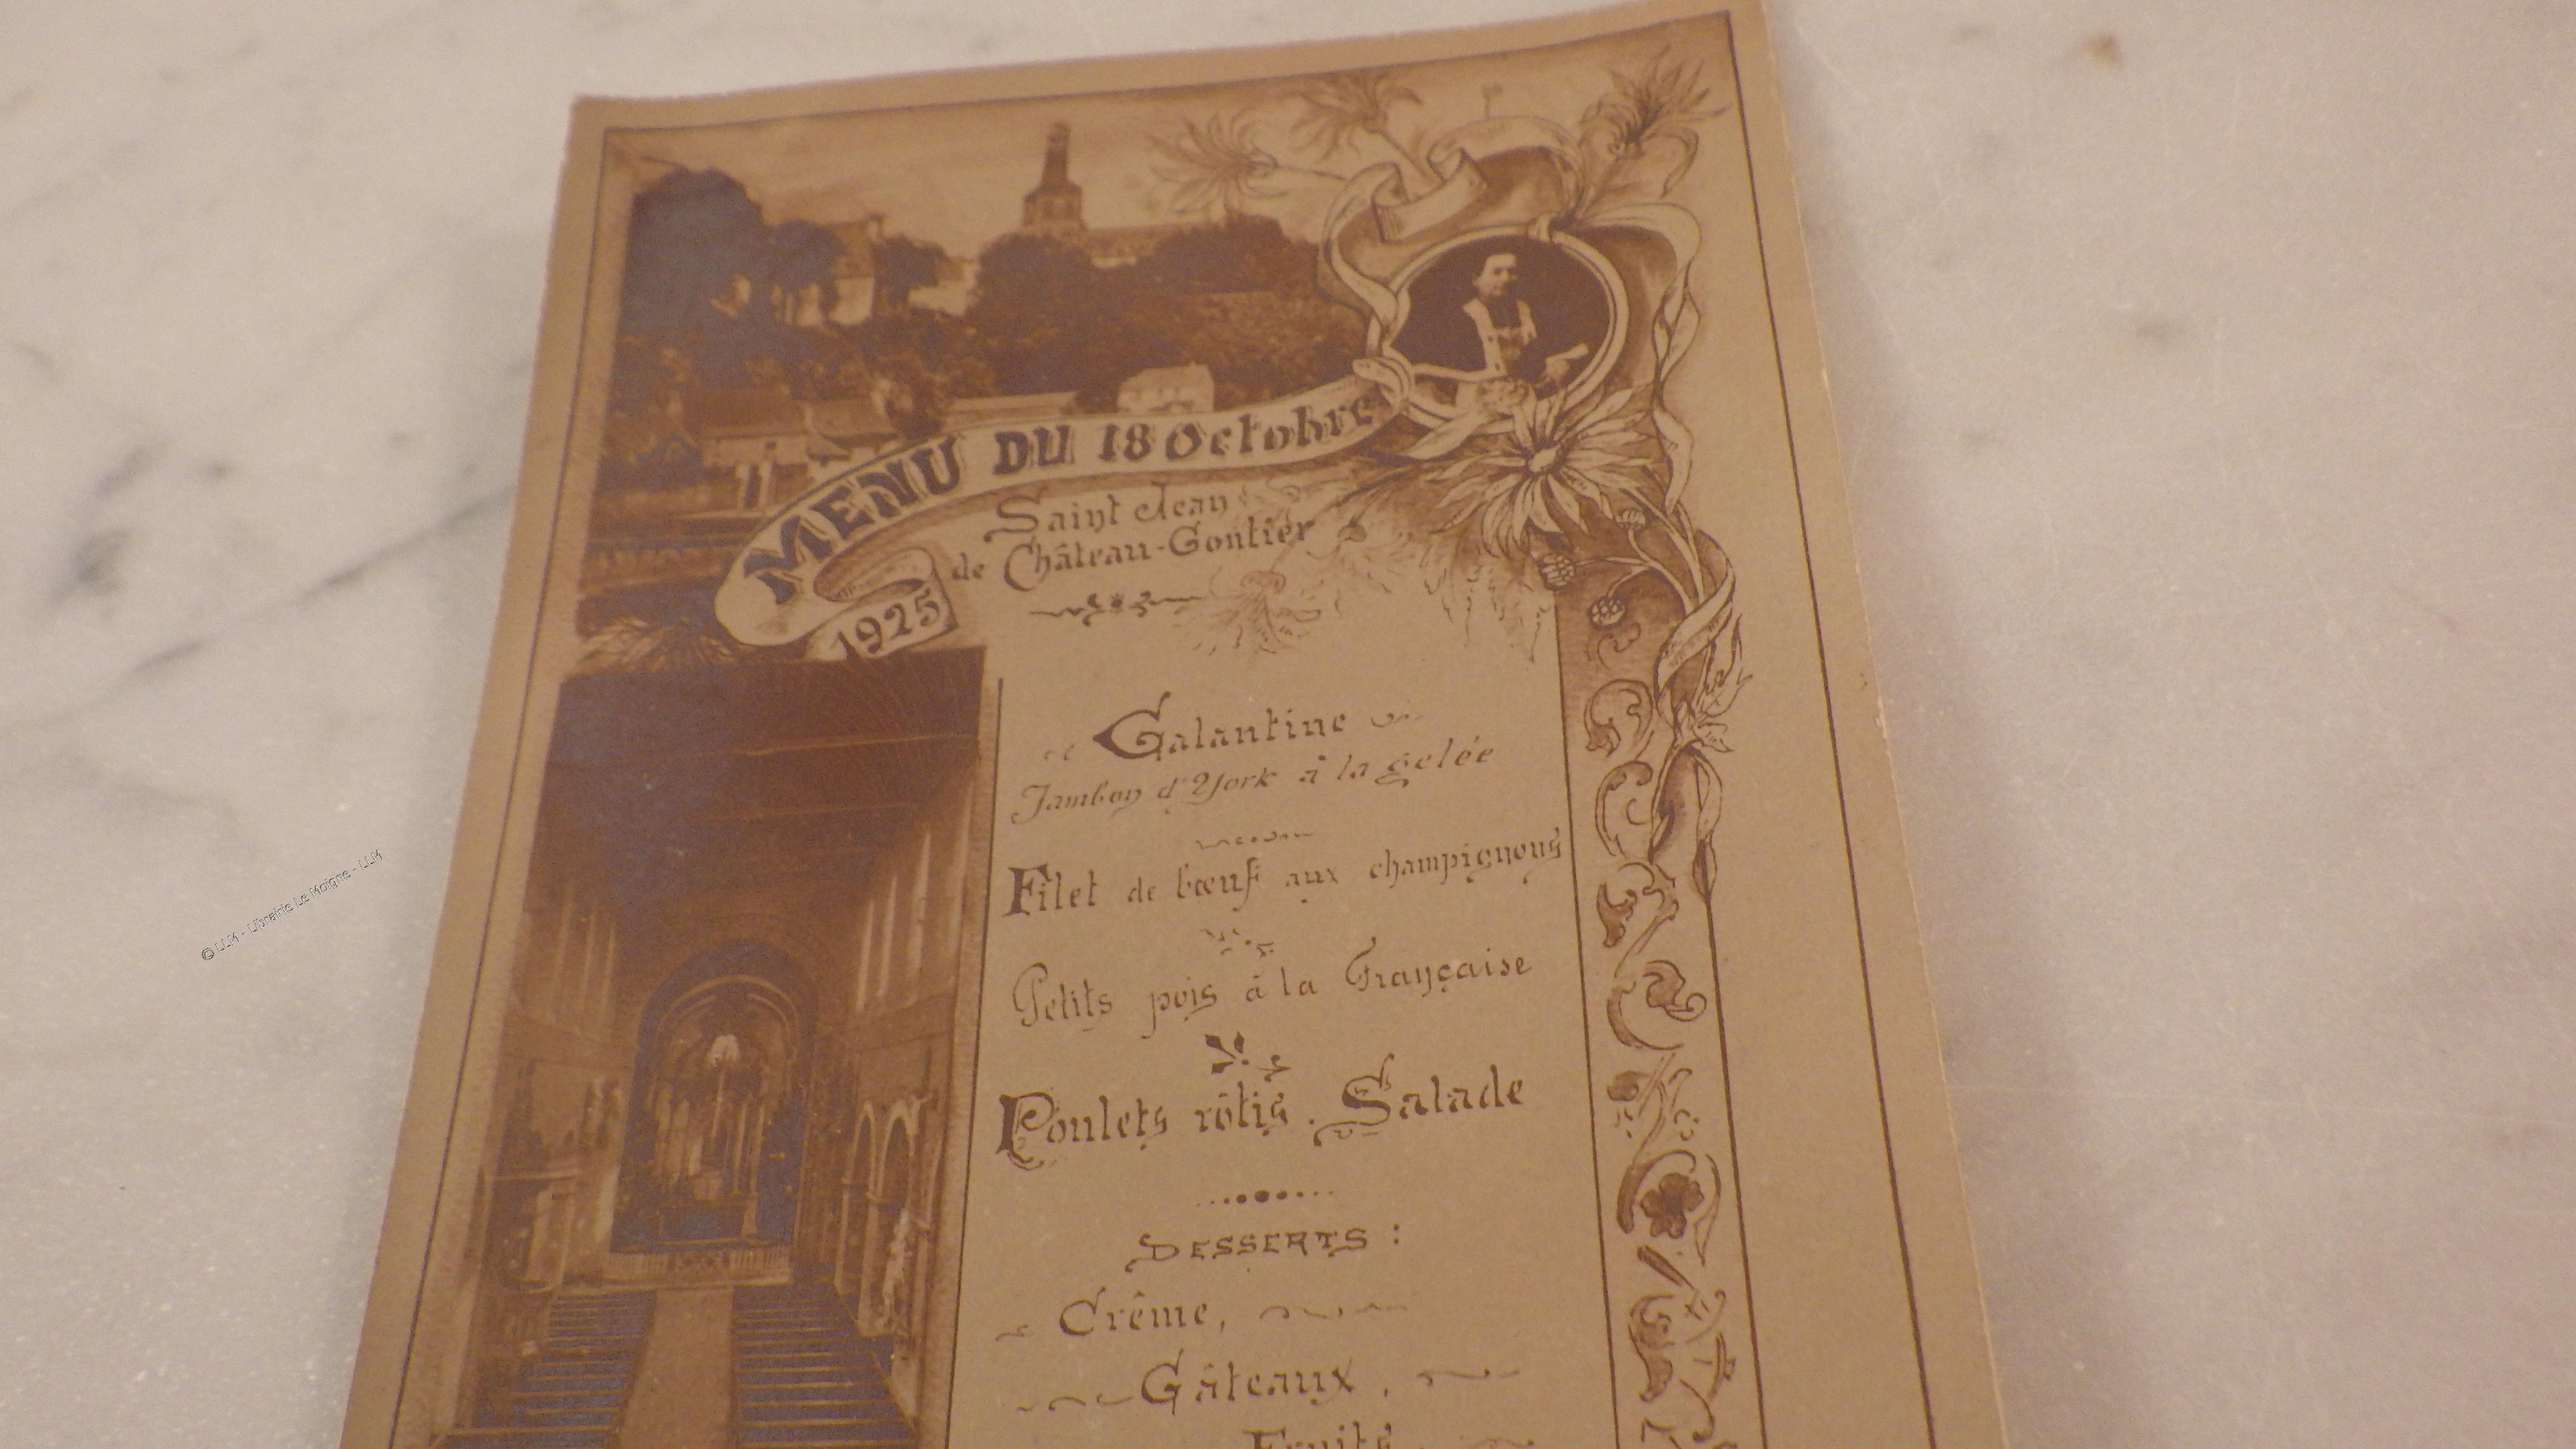 MENU DU 18 Octobre
1925
Saint Jean
de Château-Gontier
Galantine
Jambon d'York à la gelée
Filet de bœuf aux champignons
Petits pois à la Française
Poulets rôtis. Salade
DESSERTS :
Crême,
Gâteaux,
Fruits
© LLM - Librairie Le Moigne - LLM